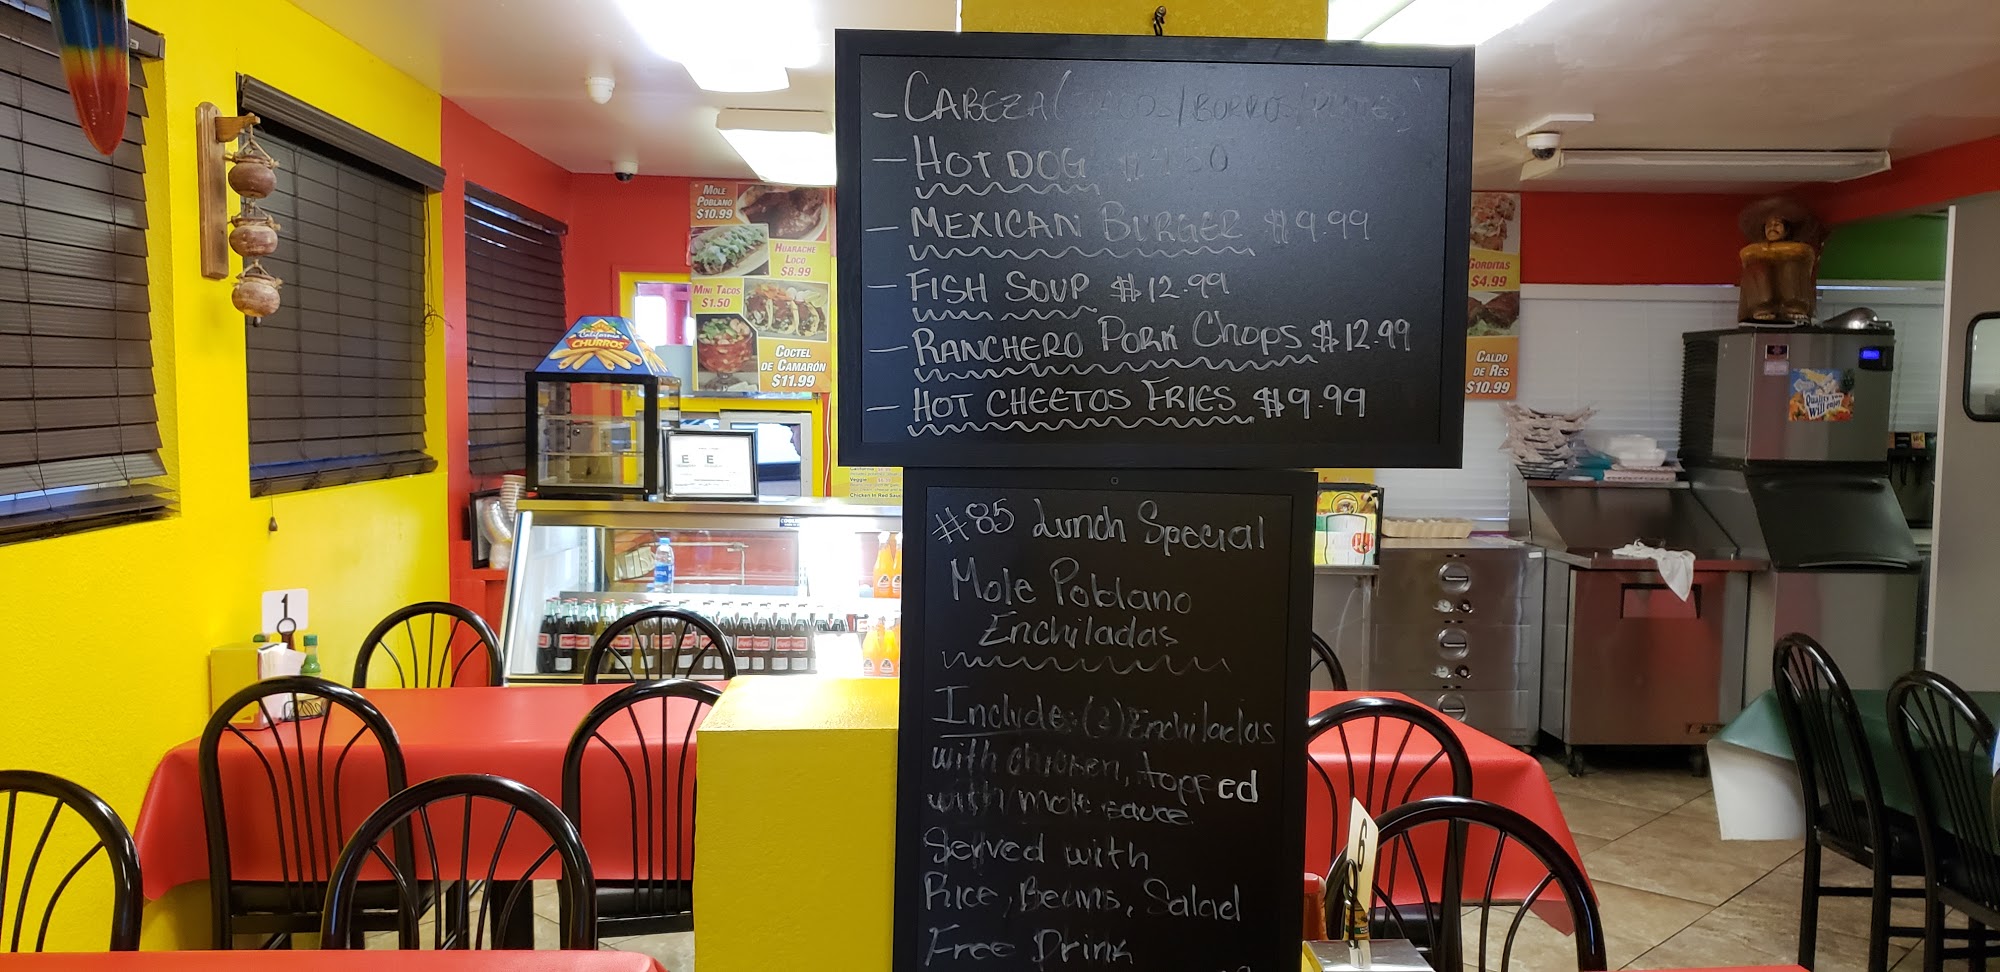 - CABEZA (TACOS/BURROS/PLATES)
- HOT DOG
- MEXICAN BURGER $9.99
- FISH SOUP $12.99
- RANCHERO PORK CHOPS $12.99
- HOT CHEETOS FRIES $9.99
#85 Lunch Special
Mole Poblano
Enchiladas
Includes (3) Enchiladas
with chicken, topped
with mole sauce
Served with
Rice, Beans, Salad
Free Drink
MOLE
POBLANO
$10.99
HUARACHE
LOCO
$8.99
MINI TACOS
$1.50
COCTEL
DE CAMARÓN
$11.99
California
CHURROS
E E
Veggie
Chicken In Red Sauce
GORDITAS
$4.99
CALDO
DE RES
$10.99
Quality you
Will enjoy
1
6